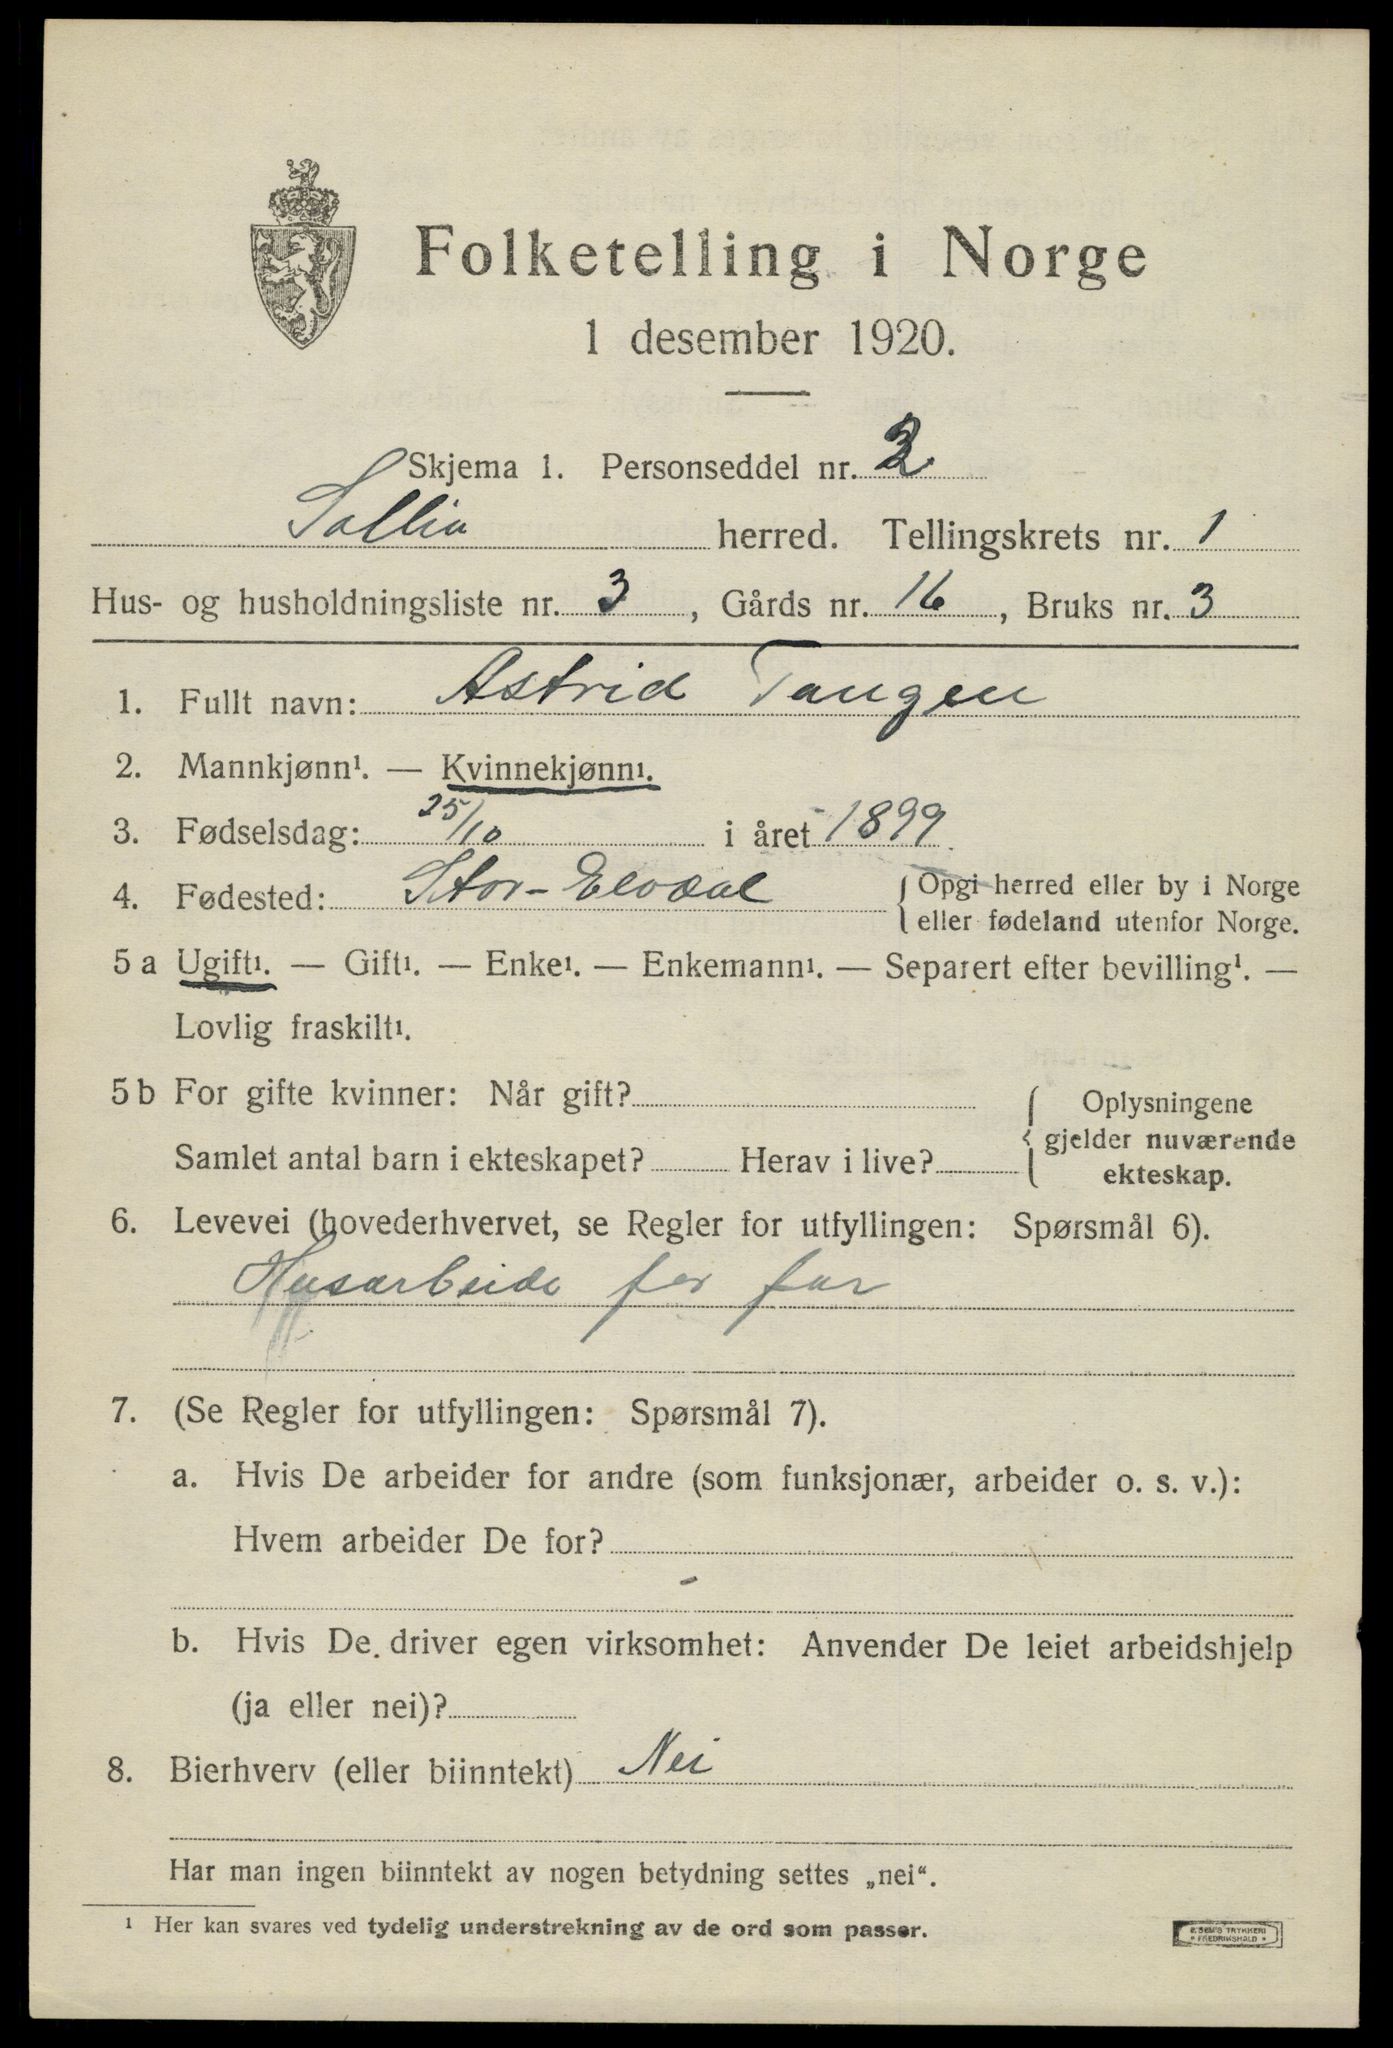 Folketelling i Norge
1 desember 1920.
Skjema 1. Personseddel nr. 2
Sollia herred. Tellingskrets nr. 1
Hus- og husholdningsliste nr. 3, Gårds nr. 16, Bruks nr. 3
1. Fullt navn: Astrid Tangen
2. Mannkjønn¹. — Kvinnekjønn¹.
3. Fødselsdag: 25/10 i året 1899
4. Fødested: Stor-Elvdal { Opgi herred eller by i Norge
eller fødeland utenfor Norge.
5 a Ugift¹. — Gift¹. — Enke¹. — Enkemann¹. — Separert efter bevilling¹. —
Lovlig fraskilt¹.
5 b For gifte kvinner: Når gift? { Oplysningene
gjelder nuværende
ekteskap.
Samlet antal barn i ekteskapet? Herav i live?
6. Levevei (hovederhvervet, se Regler for utfyllingen: Spørsmål 6).
Husarbeide for far
7. (Se Regler for utfyllingen: Spørsmål 7).
a. Hvis De arbeider for andre (som funksjonær, arbeider o. s. v.):
Hvem arbeider De for?
-
b. Hvis De driver egen virksomhet: Anvender De leiet arbeidshjelp
(ja eller nei)?
8. Bierhverv (eller biinntekt) Nei
Har man ingen biinntekt av nogen betydning settes „nei“.
¹ Her kan svares ved tydelig understrekning av de ord som passer.
E. SEM'S TRYKKERI
* FREDRIKSHALD *